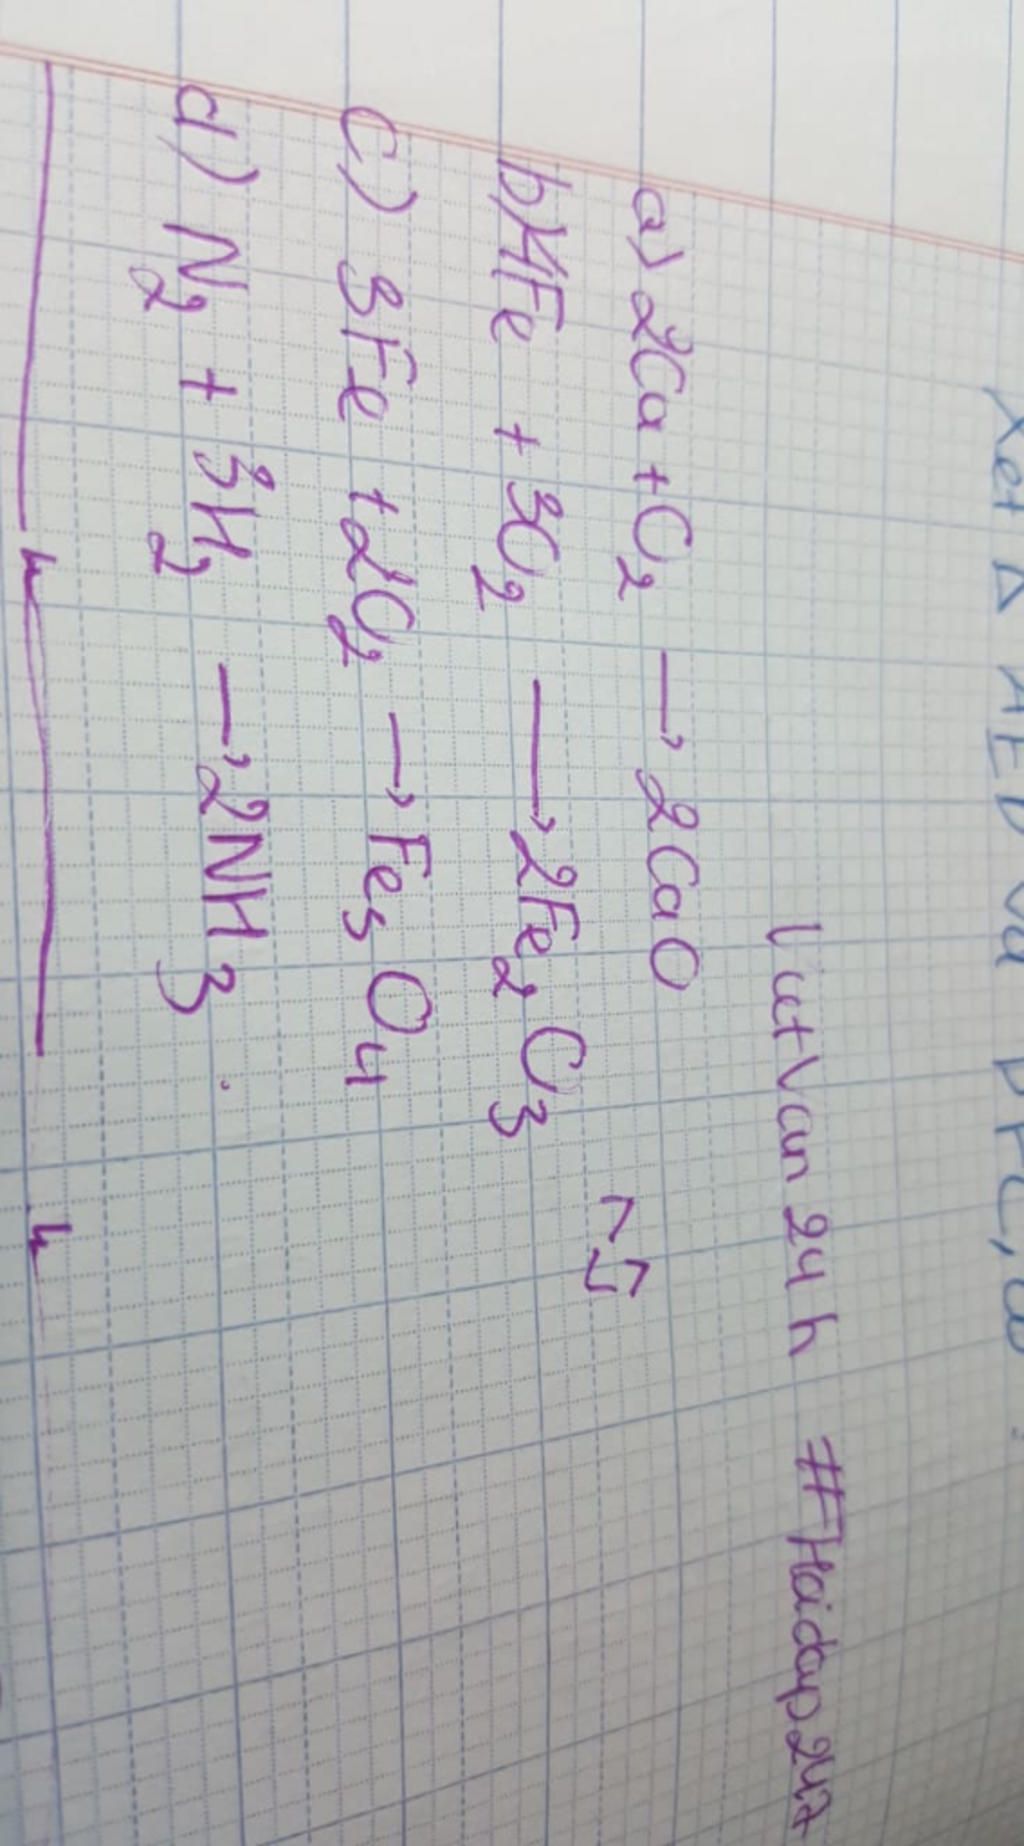 Xét Δ AED và
luatvan24h #Hoidap247
a) 2Ca + O₂ → 2CaO
b) 4Fe + 3O₂ → 2Fe₂O₃
c) 3Fe + 2O₂ → Fe₃O₄
d) N₂ + 3H₂ → 2NH₃.